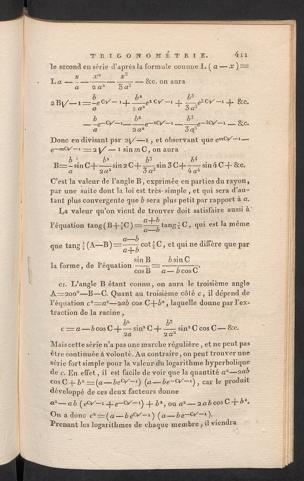 TRIGONOMÉTRIE. 411
le second en série d'après la formule connue L (a — x) =
La — x/a — x²/2a² — x³/3a³ — &c. on aura
2B√—1 = b/a e^C√—1 + b²/2a² e^2C√—1 + b³/3a³ e^3C√—1 + &c.
— b/a e^—C√—1 — b²/2a² e^—2C√—1 — b³/3a³ e^—3C√—1 — &c.
Donc en divisant par 2√—1, et observant que e^mC√—1 —
e^—mC√—1 = 2√—1 sin m C, on aura
B = b/a sin C + b²/2a² sin 2C + b³/3a³ sin 3C + b⁴/4a⁴ sin 4C + &c.
C'est la valeur de l'angle B, exprimée en parties du rayon,
par une suite dont la loi est très-simple, et qui sera d'au-
tant plus convergente que b sera plus petit par rapport à a.
La valeur qu'on vient de trouver doit satisfaire aussi à
l'équation tang (B + ½C) = a+b/a—b tang ½C, qui est la même
que tang ½ (A—B) = a—b/a+b cot ½C, et qui ne diffère que par
la forme, de l'équation sin B/cos B = b sin C/a — b cos C.
CI. L'angle B étant connu, on aura le troisième angle
A = 200° — B — C. Quant au troisième côté c, il dépend de
l'équation c² = a² — 2ab cos C + b², laquelle donne par l'ex-
traction de la racine,
c = a — b cos C + b²/2a sin² C + b³/2a² sin² C cos C — &c.
Mais cette série n'a pas une marche régulière, et ne peut pas
être continuée à volonté. Au contraire, on peut trouver une
série fort simple pour la valeur du logarithme hyperbolique
de c. En effet, il est facile de voir que la quantité a² — 2ab
cos C + b² = (a — be^C√—1) (a — be^—C√—1), car le produit
développé de ces deux facteurs donne
a² — ab (e^C√—1 + e^—C√—1) + b², ou a² — 2ab cos C + b².
On a donc c² = (a — be^C√—1) (a — be^—C√—1).
Prenant les logarithmes de chaque membre, il viendra